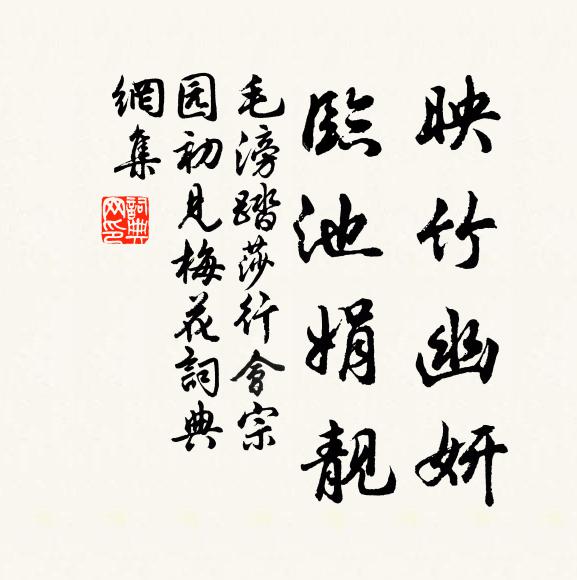 映竹幽妍
臨池娟靚
毛滂踏莎行會宗
园初見梅花詞典
網集
詞典
网印